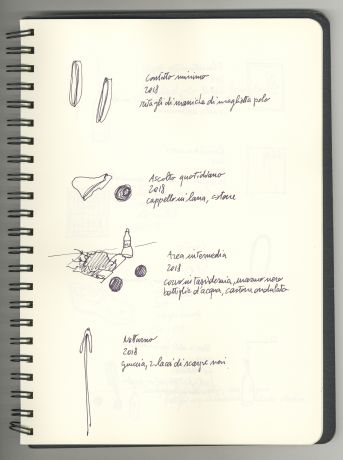 Contatto minimo
2018
ritagli di maniche di maglietta polo
Ascolto quotidiano
2018
cappello in lana, cotone
Area intermedia
2018
corvo in tassidermia, marmo nero
bottiglia d'acqua, cartone ondulato
Notturno
2018
guaina, 2 lacci di scarpe neri